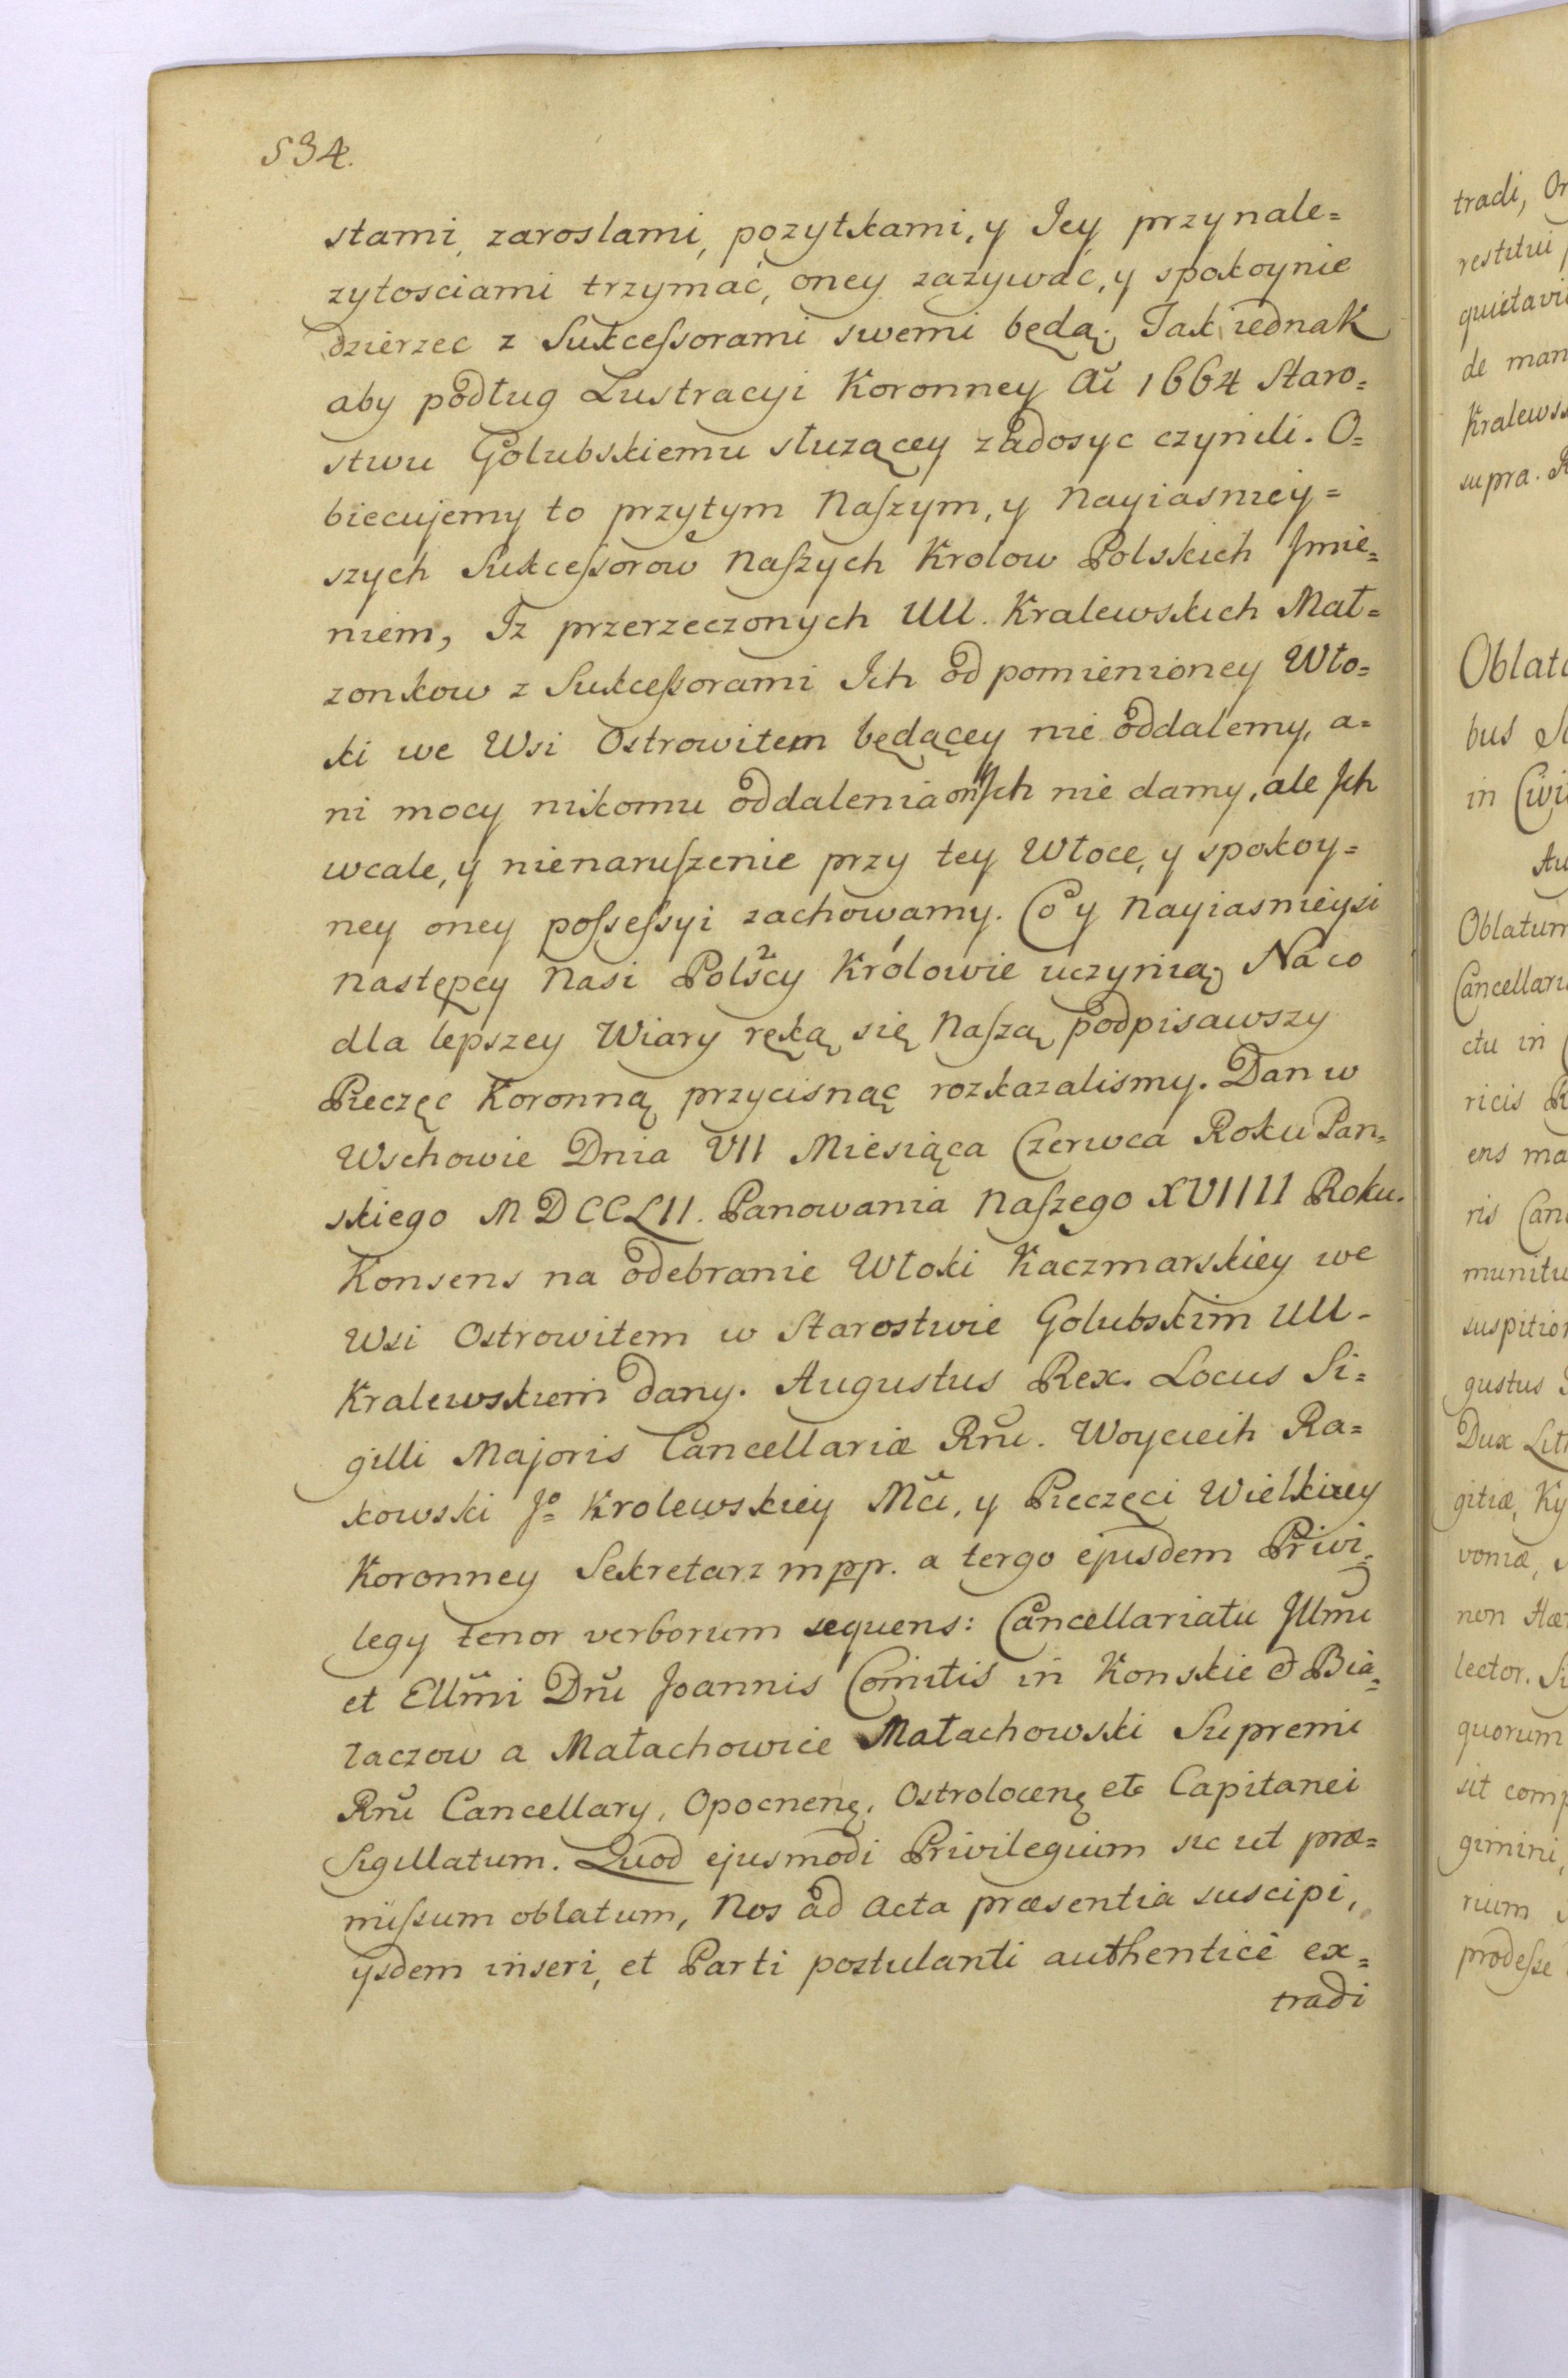 534.
stami, zaroslami, pozytkami, y Jey przynale=
zytosciami trzymać, oney zazywać, y spokoynie
dzierzec z Sukceſsorami swemi będą; Jak iednak
aby podług Lustracyi Koronney Ai 1664 Staro=
stwu Golubskiemu słuzącey zadosyc czynili. O=
biecujemy to przytym Naſzym, y Nayiasniey=
szych Sukceſsorow Naſzych Krolow Polskich Jmie=
niem, Iz przerzeczonych UU. Kralewskich Mał=
zonkow z Sukceſsorami Ich od pomienioney Wło=
ki we Wsi Ostrowitem będącey nie oddalemy, a=
ni mocy nikomu oddalenia onych nie damy, ale Jch
wcale, y nienaruſzenie przy tey Włoce, y spokoy=
ney oney poſseſsyi zachowamy. Co y Nayiasnieysi
Następcy Nasi Polscy Królowie uczynią; Na co
dla lepszey Wiary ręką się Naſzą podpisawszy
Pieczęc Koronną przycisnąć rozkazalismy. Dan w
Wschowie Dnia VII Miesiąca Czerwca Roku Pan=
skiego MDCCLII. Panowania Naſzego XVIIII Roku.
Konsens na odebranie Włoki Kaczmarskiey we
Wsi Ostrowitem w Starostwie Golubskim UU.
Kralewskiem dany. Augustus Rex. Locus Si=
gilli Majoris Cancellariæ Rnĩ. Woyciech Ra=
kowski Jo= Krolewskiey Mci, y Pieczęci Wielkiey
Koronney Sekretarz mpp. a tergo ejusdem Privi=
legy tenor verborum sequens: Cancellariatu Jllmi
et Ellmi Dni Joannis Comitis in Konskie et Bia=
łaczow a Małachowice Małachowski Supremi
Rni Cancellary, Opocnenę, Ostrolocenę etc Capitanei
Sigillatum. Quod ejusmodi Privilegium sic ut præ=
miſsum oblatum, Nos ad Acta præsentia suscipi,
ysdem inseri, et Parti postulanti authenticè ex=
tradi
tradi,
restitui
de man
supra.
bus
in
Oblatum
ctu in
ricis
ens ma
ris
gustus
Dux
gitiæ,
voniæ,
non
lector.
quorum
sit comp
gimini,
prodeſse